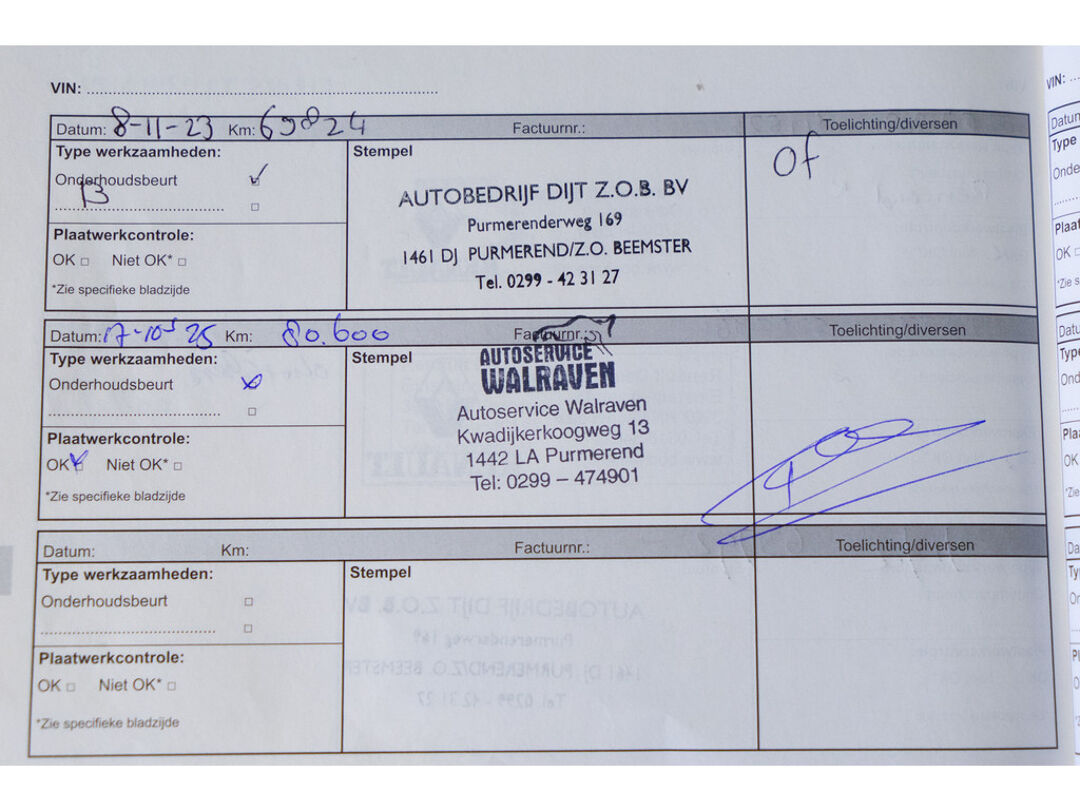 VIN:
Datum: 8-11-23 Km: 69824 Factuurnr.: Toelichting/diversen
Type werkzaamheden: Stempel
Onderhoudsbeurt
B
Plaatwerkcontrole:
OK Niet OK*
*Zie specifieke bladzijde
AUTOBEDRIJF DIJT Z.O.B. BV
Purmerenderweg 169
1461 DJ PURMEREND/Z.O. BEEMSTER
Tel. 0299 - 42 31 27
Of
Datum: 17-10-25 Km: 80.600 Factuurnr.: Toelichting/diversen
Type werkzaamheden: Stempel
Onderhoudsbeurt
Plaatwerkcontrole:
OK Niet OK*
*Zie specifieke bladzijde
AUTOSERVICE
WALRAVEN
Autoservice Walraven
Kwadijkerkoogweg 13
1442 LA Purmerend
Tel: 0299 – 474901
Datum: Km: Factuurnr.: Toelichting/diversen
Type werkzaamheden: Stempel
Onderhoudsbeurt
Plaatwerkcontrole:
OK Niet OK*
*Zie specifieke bladzijde
VIN: